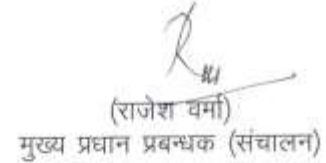 (राजेश वर्मा)
मुख्य प्रधान प्रबन्धक (संचालन)